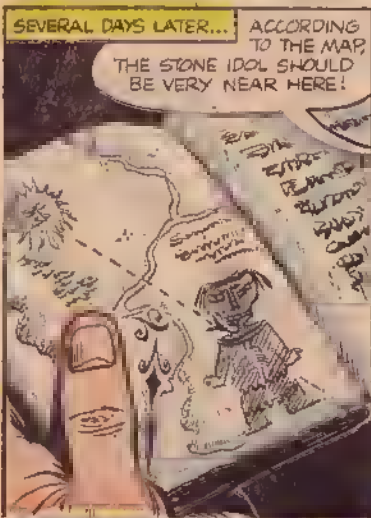 SEVERAL DAYS LATER...
ACCORDING
TO THE MAP,
THE STONE IDOL SHOULD
BE VERY NEAR HERE!